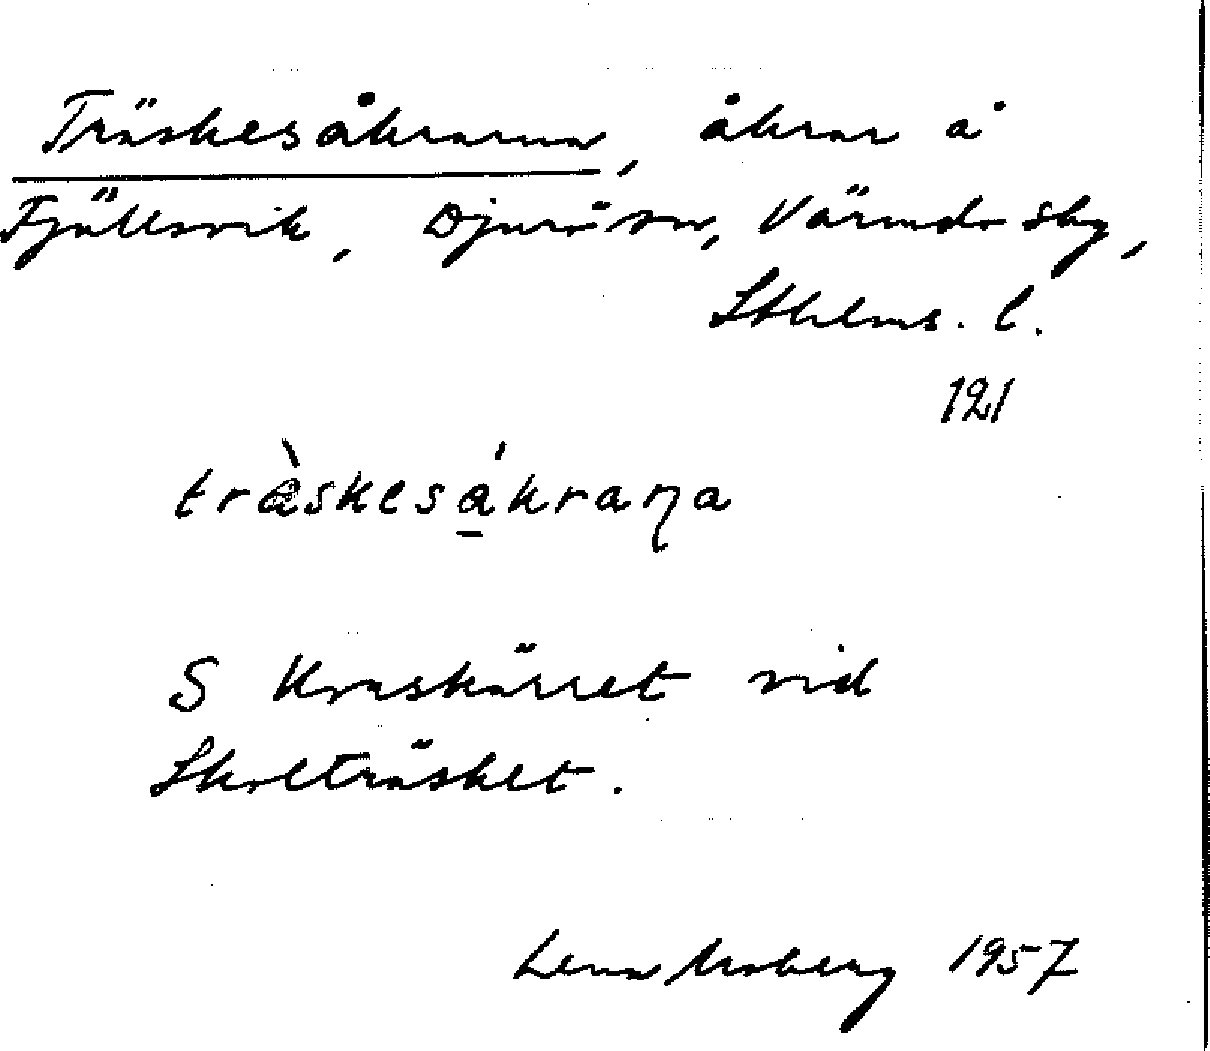 Träskesåkrarna, åkrar å
Fjällsvik, Djurö sn, Värmdö sky,
Sthlms. l.
121
træ̀skesá̲kraṇa
S Kraskärret vid
Skolträsket.
Lena Moberg 1957